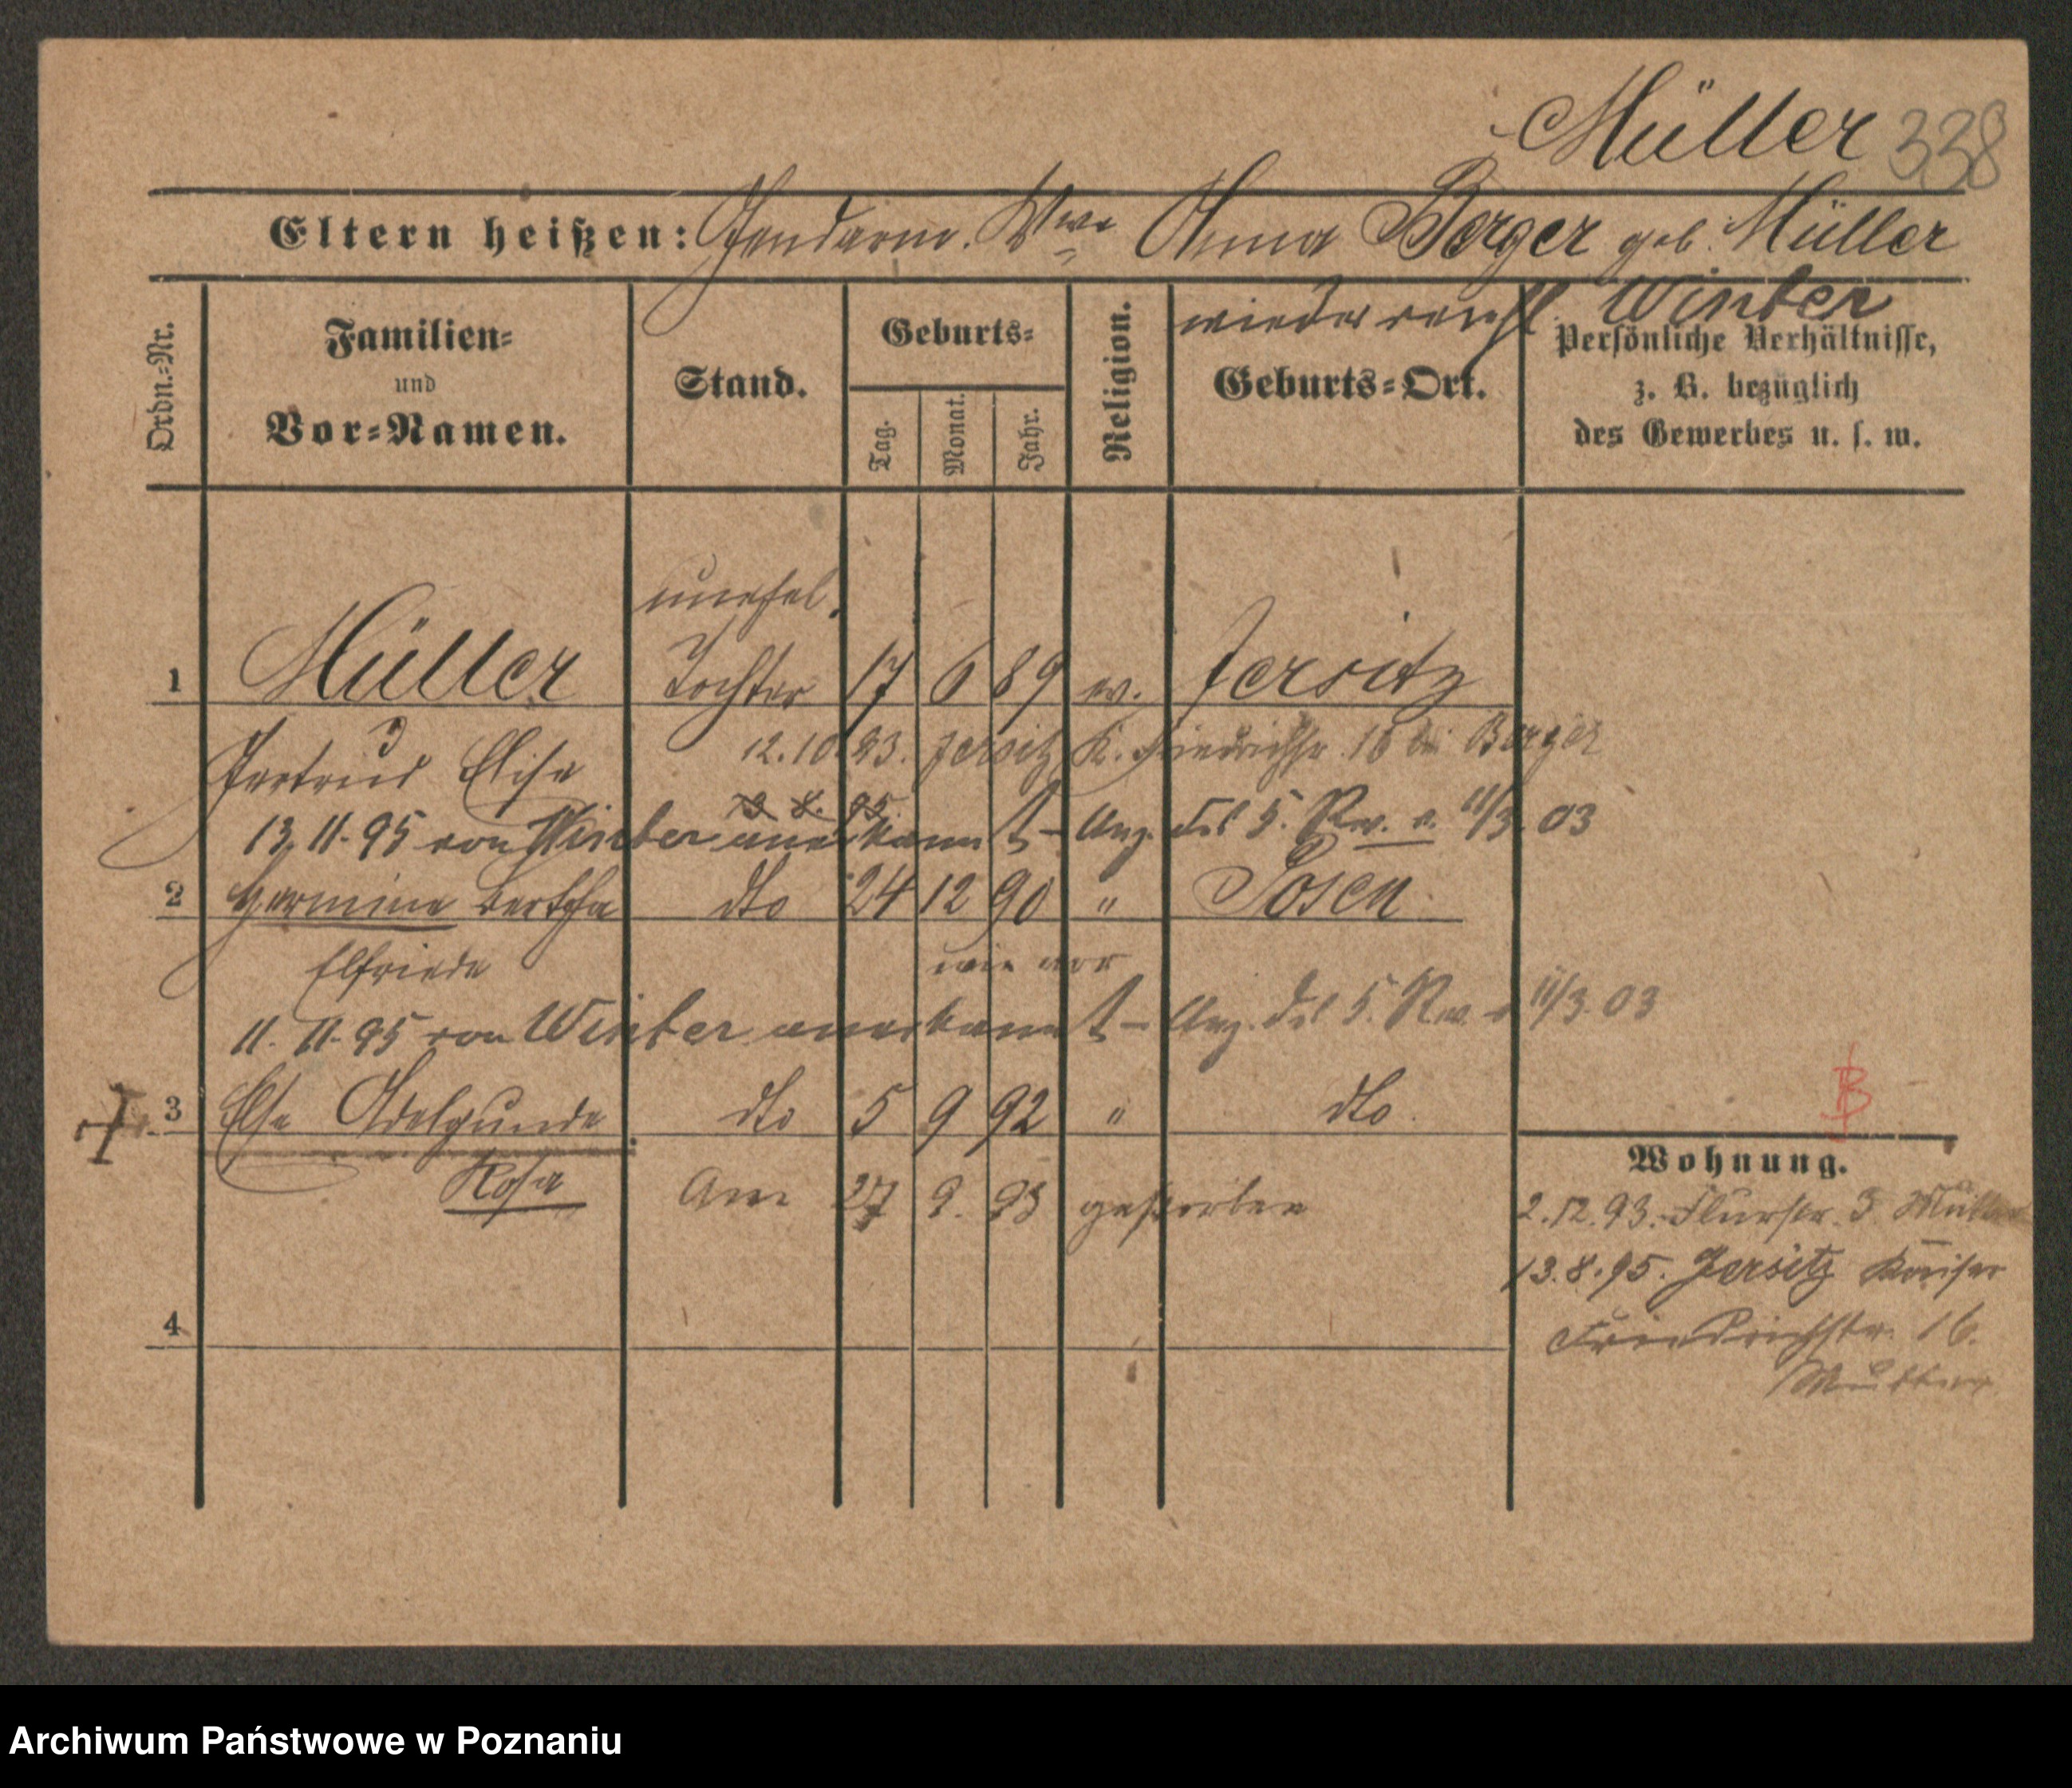 Müller 338
Eltern heißen: Gendarm. Wwe Anna Berger geb. Müller
wiederverehl. Winter
Ordn.-Nr.
Familien-
und
Vor-Namen.
Stand.
Geburts-
Tag.
Monat.
Jahr.
Religion.
Geburts-Ort.
Persönliche Verhältnisse,
z. B. bezüglich
des Gewerbes u. s. w.
unehel.
1 Müller Tochter 17 6 89 ev. Jersitz
Gertrud Elise 12.10.93. Jersitz K. Friedrichstr. 16 bei Berger
13. 8. 95
13. 11. 95 von Winter anerkannt - Anz. des 5. Rev. v. 11/3. 03
2 Hermine Bertha dto 24 12 90 " Posen
Elfriede wie vor
11. 11. 95 von Winter anerkannt - Anz. des 5. Rev. v. 11/3. 03
3 Else Adelgunde dto 5 9 92 " dto.
Rosa Am 27 9. 93 gestorben
B
Wohnung.
2.12.93. Flurstr. 3 Mutter
13.8.95. Jersitz Kaiser
Friedrichstr. 16.
Mutter
4
Archiwum Państwowe w Poznaniu